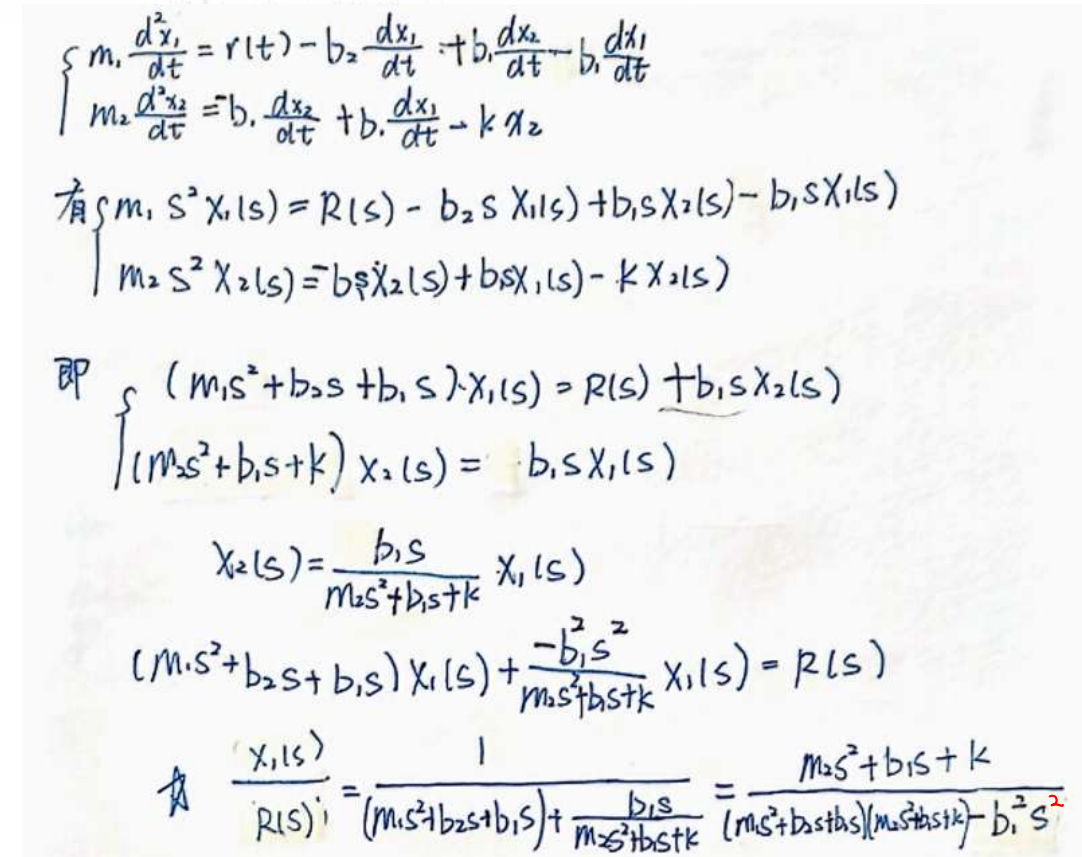 { m₁ d²x₁/dt = r(t) - b₂ dx₁/dt + b₁ dx₂/dt - b₁ dx₁/dt
m₂ d²x₂/dt = -b₁ dx₂/dt + b₁ dx₁/dt - k x₂
有 { m₁ s² X₁(s) = R(s) - b₂ s X₁(s) + b₁ s X₂(s) - b₁ s X₁(s)
m₂ s² X₂(s) = -b₁ s X₂(s) + b₁ s X₁(s) - k X₂(s)
即 { (m₁s² + b₂s + b₁s)·X₁(s) = R(s) + b₁s X₂(s)
(m₂s² + b₁s + k) X₂(s) = b₁s X₁(s)
X₂(s) = b₁s / (m₂s² + b₁s + k) X₁(s)
(m₁s² + b₂s + b₁s) X₁(s) + -b₁²s² / (m₂s² + b₁s + k) X₁(s) = R(s)
X₁(s) / R(s) = 1 / ((m₁s² + b₂s + b₁s) + b₁s / (m₂s² + b₁s + k)) = (m₂s² + b₁s + k) / ((m₁s² + b₂s + b₁s)(m₂s² + b₁s + k) - b₁²s²)